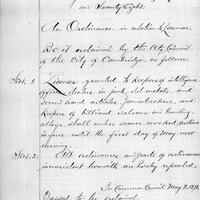 and Seventy Eight.
An Ordinance in relation to Licenses.
Be it ordained by the City Council
of the City of Cambridge, as follows,
Sect. 1. Licenses granted to keepers of intelligence
offices, dealers in junk, old metals, and
second hand articles, pawnbrokers, and
keepers of billiard saloons and bowling
alleys, shall unless sooner revoked, continue
in force until the first day of May next
ensuing.
Sect. 2. All ordinances, and parts of ordinances
inconsistent herewith are hereby repealed.
In Common Council May 7, 1878.
Passed to be ordained